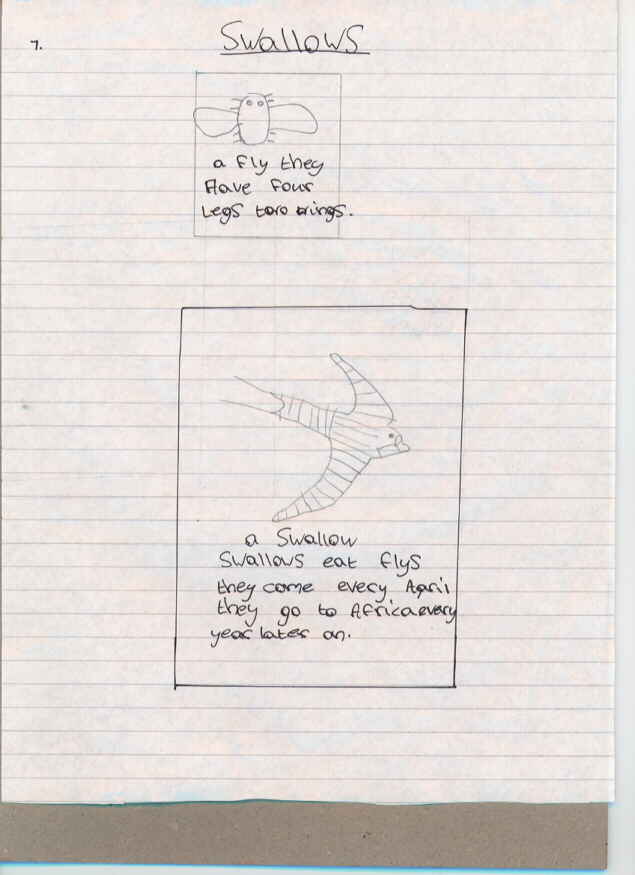 7.
Swallows
a fly they
Have four
Legs two wings.
a Swallow
Swallows eat flys
they come every April
they go to Africa every
year later on.